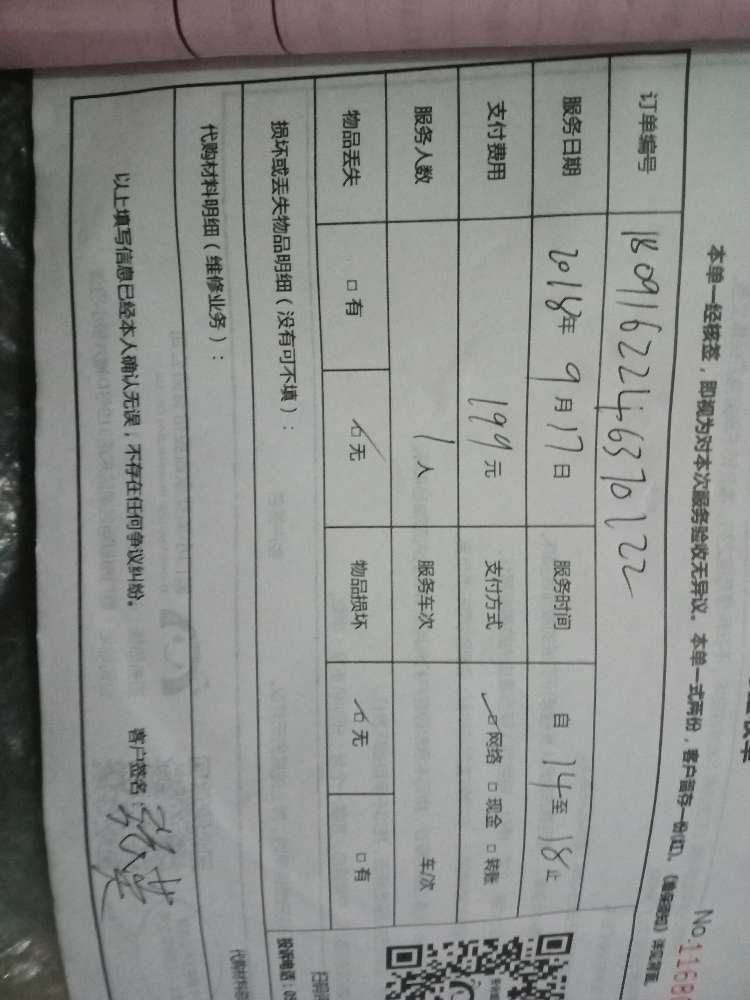 No.1168
本单一经核签，即视为对本次服务验收无异议。本单一式两份，客户留存一份(红)。
订单编号 180916224637022
服务日期 2018年 9月17日 服务时间 自14至18止
支付费用 199元 支付方式 ☑网络 □现金 □转账
服务人数 1人 服务车次 车/次
物品丢失 □有 ☑无 物品损坏 ☑无 □有
损坏或丢失物品明细（没有可不填）：
代购材料明细（维修业务）：
以上填写信息已经本人确认无误，不存在任何争议纠纷。 客户签名：
投诉电话：